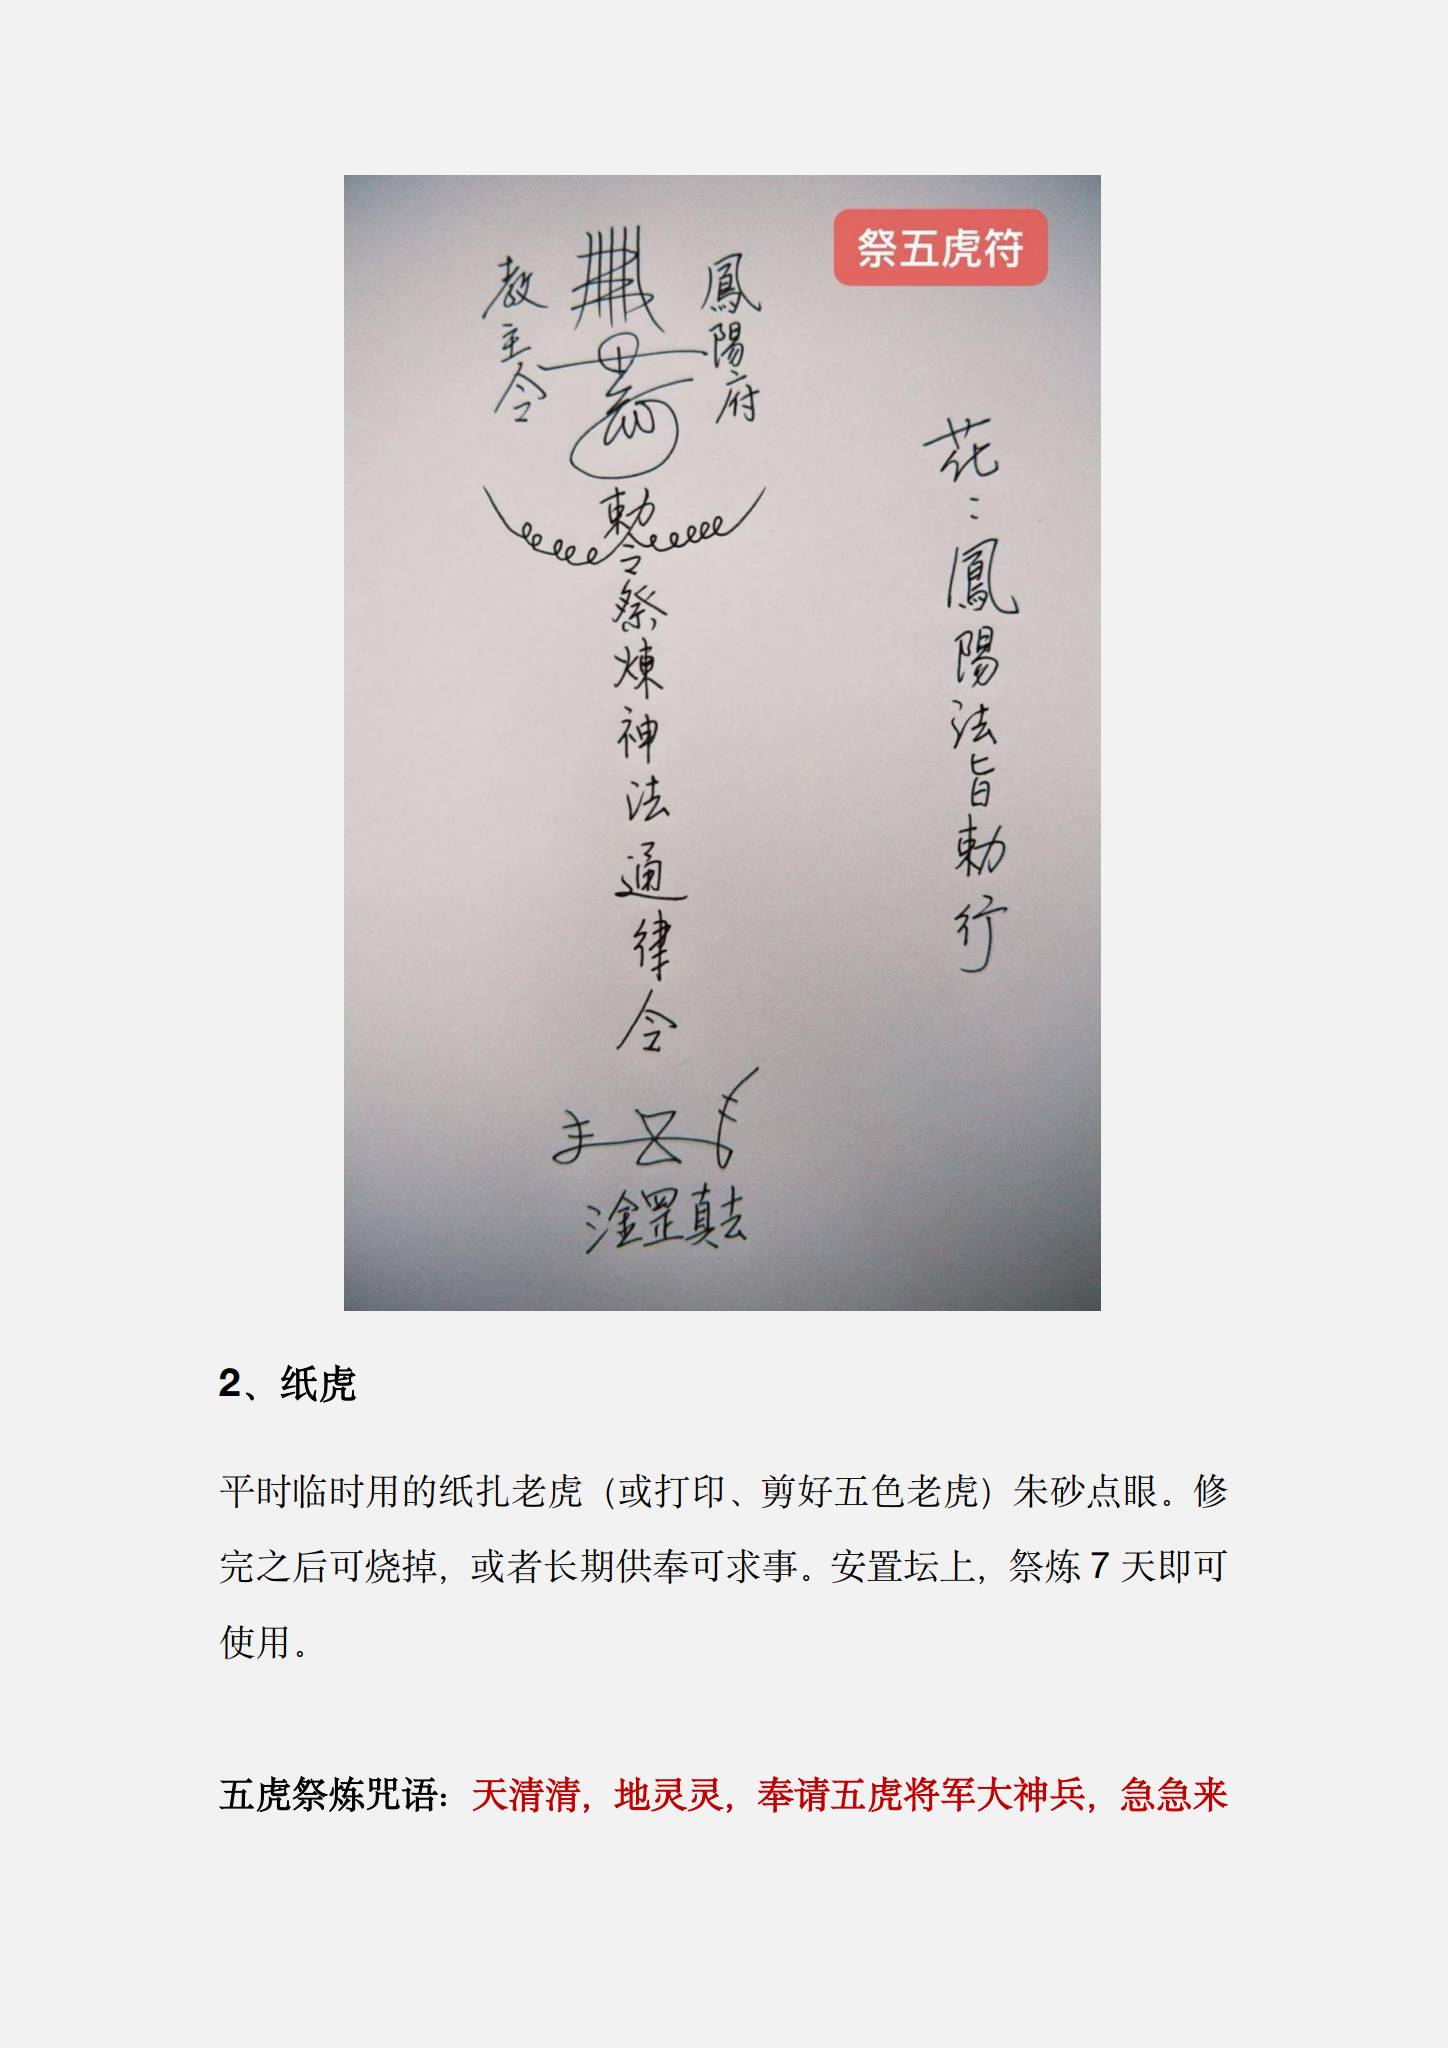 祭五虎符
鳳陽府
教主令
勅令祭煉神法通律令
罡真
花:鳳陽法旨勅行
2、纸虎
平时临时用的纸扎老虎（或打印、剪好五色老虎）朱砂点眼。修
完之后可烧掉，或者长期供奉可求事。安置坛上，祭炼 7 天即可
使用。
五虎祭炼咒语：天清清，地灵灵，奉请五虎将军大神兵，急急来